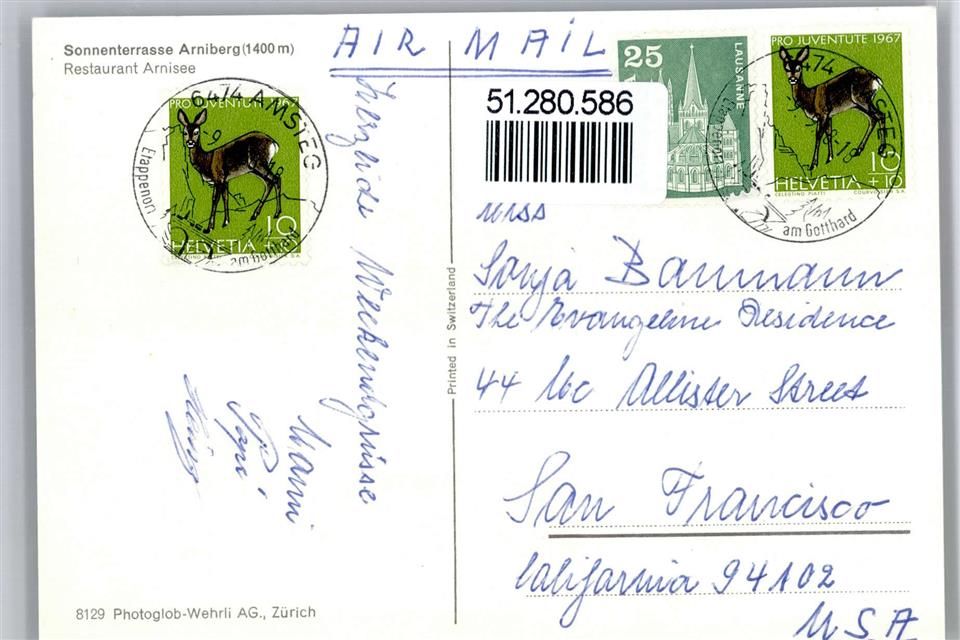 Sonnenterrasse Arniberg (1400 m)
Restaurant Arnisee
AIR MAIL
6474 AMSTEG
PRO JUVENTUTE 1967
Etappenort
am Gotthard
10
HELVETIA
25
LAUSANNE
51.280.586
PRO JUVENTUTE 1967
6474
STEG
10
+10
HELVETIA
CELESTINO PIATTI
COURVOISIER S.A.
am Gotthard
Herzliche Wochendgrüsse
Mami
Papi
Heinz
Printed in Switzerland
Miss
Sonja Baumann
The Evangeline Residence
44 Mc Allister Street
San Francisco
California 94102
U.S.A
8129 Photoglob-Wehrli AG., Zürich